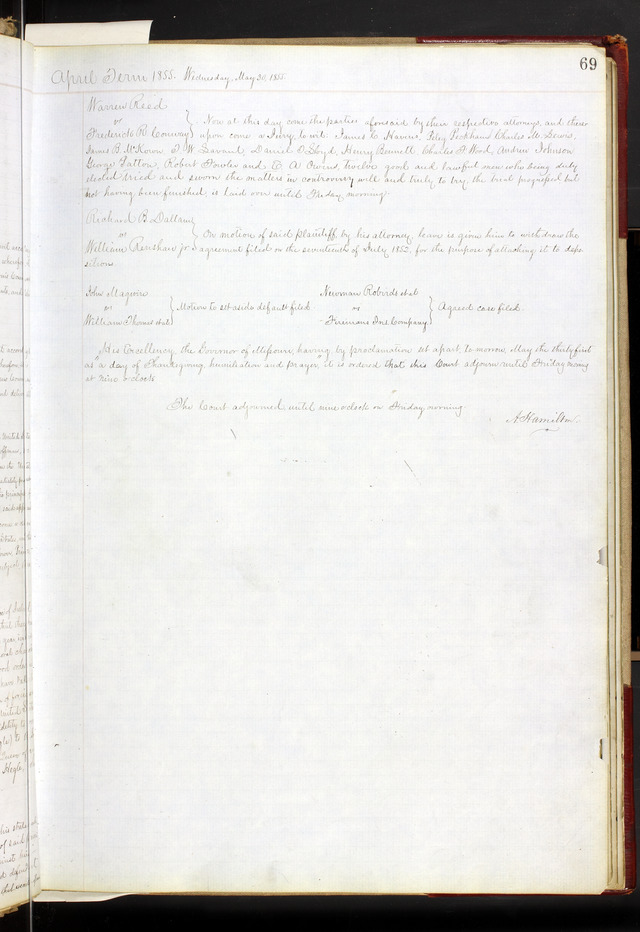 69
April Term 1855. Wednesday, May 30, 1855
Warren Reed
vs
Frederick R. Conway } Now at this day come the parties aforesaid by their respective attorneys, and there
upon come a Jury, to wit: James C. Havens, Peckham Charles M.
James B. McKown, J. W. Savant, Daniel D. Lloyd, Henry Bennett, Charles P. Wood, Andrew Johnson
George Patton, Robert Fowler and C. A. Owens, twelve good and lawful men who being duly
elected tried and sworn the matters in controversy well and truly to try, the trial progressed but
not having been finished is laid over until Friday morning.
Richard B. Dallam
vs
William Renshaw jr. } On motion of said plaintiff, by his attorney, leave is given him to withdraw the
agreement filed on the seventeenth of July 1852, for the purpose of attaching it to depo
sitions
John Maguire
vs
William Thomas et al } Motion to set aside default filed.
Newman Roberds et al
vs
Firemans Ins. Company } Agreed case filed.
His Excellency, the Governor of Missouri, having by proclamation set apart to morrow May the thirty first
as "a day of thanksgiving, humiliation and prayer" it is ordered that this Court adjourn until Friday morning
at nine o'clock
The Court adjourned until nine o'clock on Friday morning
A. Hamilton